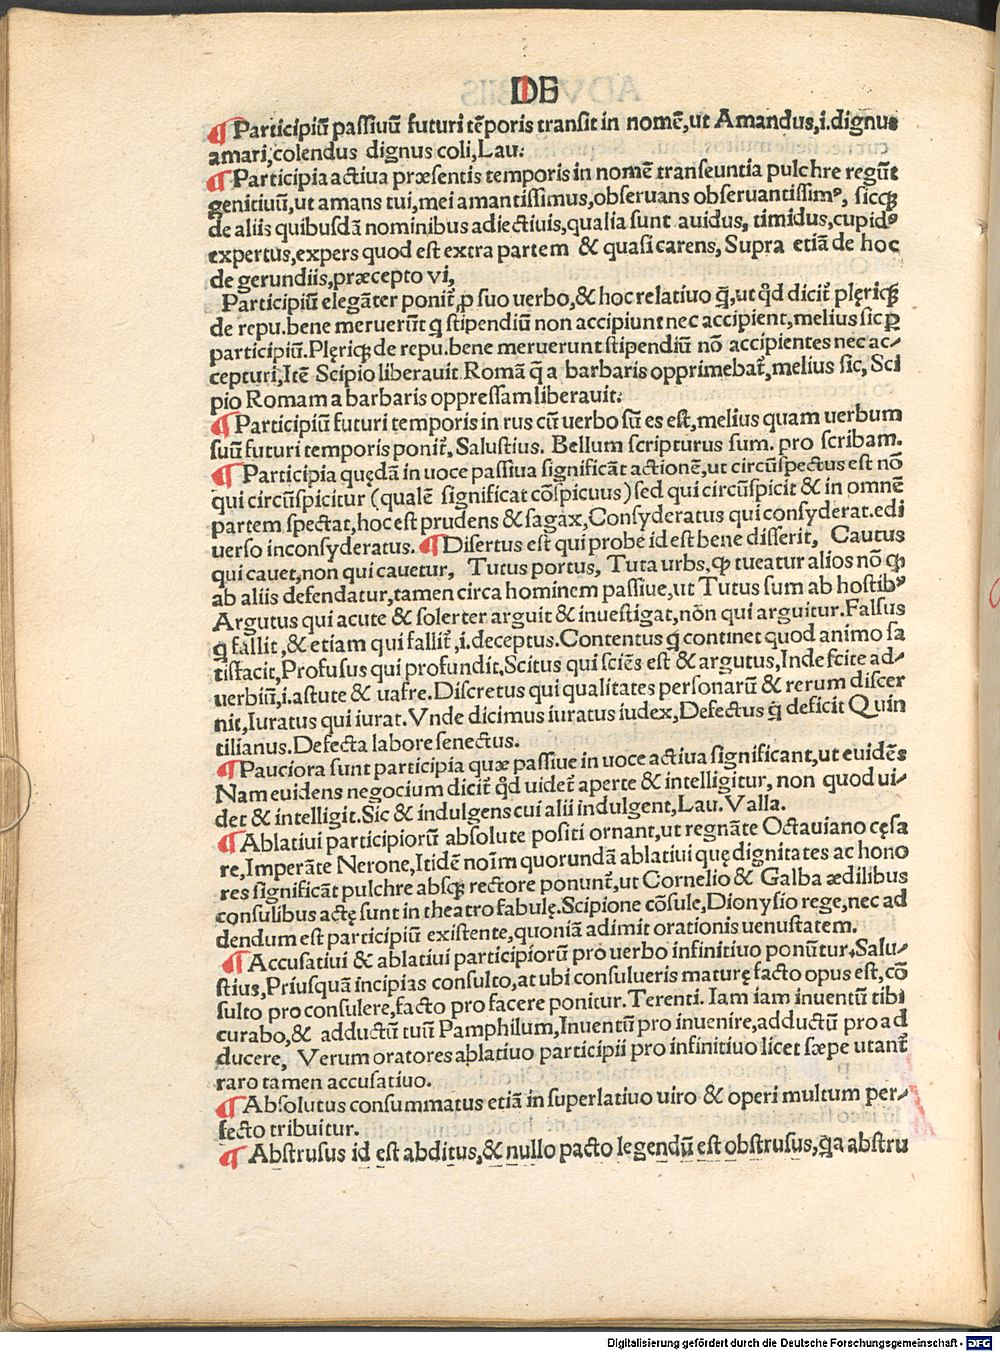 DE
¶ Participiū passiuū futuri tēporis transit in nomē,ut Amandus,i.dignus
amari,colendus dignus coli,Lau:
¶ Participia actiua præsentis temporis in nomē transeuntia pulchre regūt
genitiuū,ut amans tui,mei amantissimus,obseruans obseruantissimꝰ, sicꝗ
de aliis quibusdā nominibus adiectiuis,qualia sunt auidus, timidus,cupidꝰ
expertus,expers quod est extra partem & quasi carens, Supra etiā de hoc
de gerundiis,præcepto vi,
Participiū elegāter ponit᷑,ꝓ suo uerbo,& hoc relatiuo q̄,ut qd̓ dicit᷑ plęriꝗ
de repu.bene meruerūt q̇ stipendiū non accipiunt nec accipient,melius sic ꝑ
participiū.Plęriꝗ de repu.bene meruerunt stipendiū nō accipientes nec ac⸗
cepturi,Itē Scipio liberauit Romā q̄ a barbaris opprimebat᷑,melius sic, Sci
pio Romam a barbaris oppressam liberauit:
¶ Participiū futuri temporis in rus cū uerbo sū es est,melius quam uerbum
suū futuri temporis ponit᷑, Salustius. Bellum scripturus sum. pro scribam.
¶ Participia quędā in uoce passiua significāt actionē,ut circūspectus est nō
qui circūspicitur (qualē significat cōspicuus) sed qui circūspicit & in omnē
partem spectat,hoc est prudens & sagax,Consyderatus qui consyderat.edi
uerso inconsyderatus. ¶ Disertus est qui probe id est bene disserit, Cautus
qui cauet,non qui cauetur, Tutus portus, Tuta urbs,ꝙ tueatur alios nō ꝙ
ab aliis defendatur,tamen circa hominem passiue,ut Tutus sum ab hostibꝰ
Argutus qui acute & solerter arguit & inuestigat,nōn qui arguitur.Falsus
q̇ fallit ,& etiam qui fallit᷑,i.deceptus.Contentus q̇ continet quod animo sa
tisfacit,Profusus qui profundit.Scitus qui sciēs est & argutus,Inde scite ad⸗
uerbiū,i.astute & uafre.Discretus qui qualitates personarū & rerum discer
nit,Iuratus qui iurat.Vnde dicimus iuratus iudex,Defectus q̇ deficit Quin
tilianus.Defecta labore senectus.
¶ Pauciora sunt participia quæ passiue in uoce actiua significant,ut euidēs
Nam euidens negocium dicit᷑ qd̓ uidet᷑ aperte & intelligitur, non quod ui⸗
det & intelligit.Sic & indulgens cui alii indulgent,Lau. Valla.
¶ Ablatiui participiorū absolute positi ornant,ut regnāte Octauiano cęsa
re,Imperāte Nerone,Itidē noīm quorundā ablatiui quę dignitates ac hono
res significāt pulchre absꝗ rectore ponunt᷑,ut Cornelio & Galba ædilibus
consulibus actę sunt in theatro fabulę.Scipione cōsule,Dionysio rege,nec ad
dendum est participiū existente,quoniā adimit orationis uenustatem.
¶ Accusatiui & ablatiui participiorū pro uerbo infinitiuo ponūtur.Salu⸗
stius,Priusquā incipias consulto,at ubi consulueris maturę facto opus est,cō
sulto pro consulere,facto pro facere ponitur. Terenti. Iam iam inuentū tibi
curabo,& adductū tuū Pamphilum,Inuentū pro inuenire,adductū pro ad
ducere, Verum oratores ablatiuo participii pro infinitiuo licet sæpe utant᷑
raro tamen accusatiuo.
¶ Absolutus consummatus etiā in superlatiuo uiro & operi multum per⸗
fecto tribuitur.
¶ Abstrusus id est abditus,& nullo pacto legendū est obstrusus,q̄a abstru
Digitalisierung gefördert durch die Deutsche Forschungsgemeinschaft - DFG